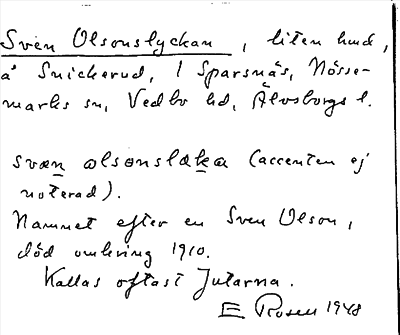 Sven Olsonslyckan, liten lund,
å Snickerud, 1 Sparsnäs, Nösse-
marks sn, Vedbo hd, Älvsborgs l.
svæn olsonsløka (accenten ej
noterad).
Namnet efter en Sven Olson,
död omkring 1910.
Kallas oftast Jutarna.
E Rosen 1948